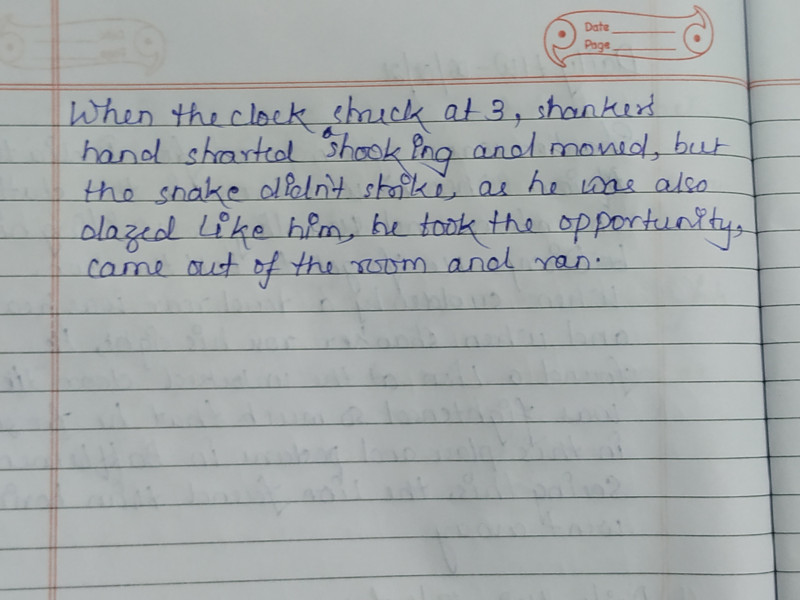 Date
Page
When the clock struck at 3, shanker's
hand started shooking and moved, but
the snake didn't strike, as he was also
dazed like him, he took the opportunity,
came out of the room and ran.